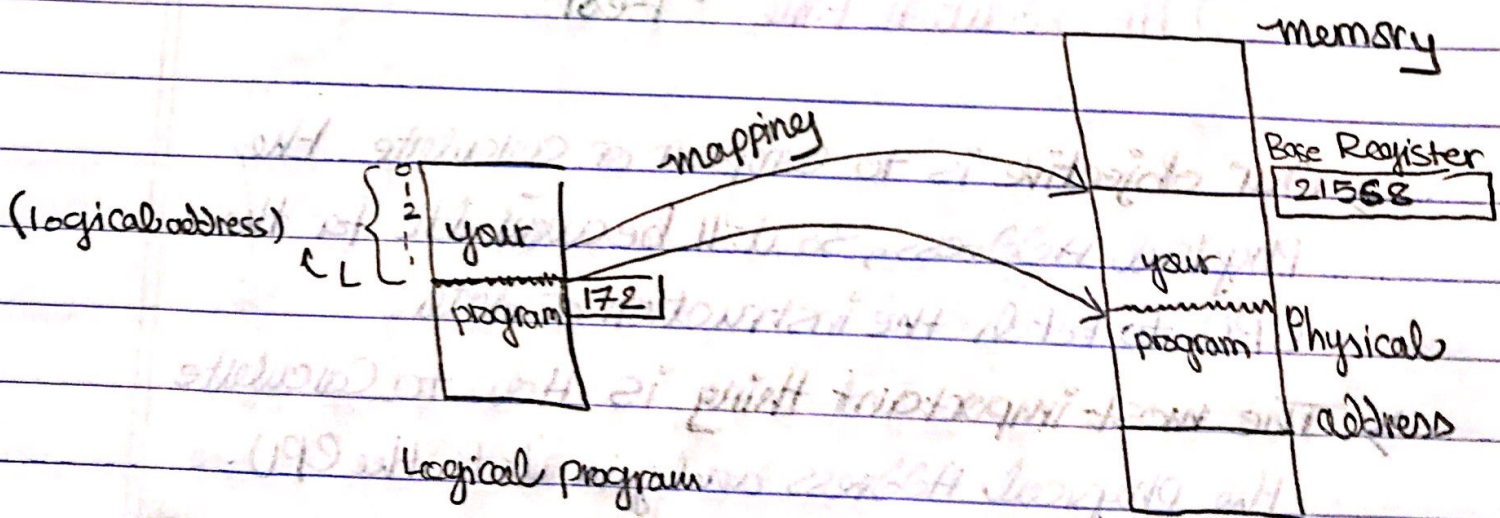 memory
mapping
Base Register
21568
(logical address)
0
1
2
your
172
program
your
program
Physical
address
Logical program